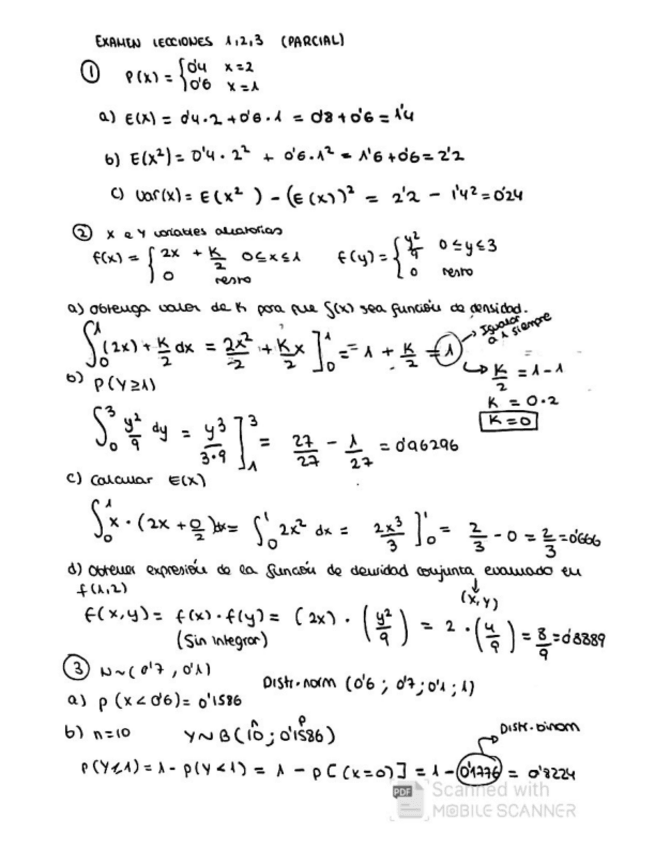 EXAMEN LECCIONES 1,2,3 (PARCIAL)
① P(x) = { 0'4 x=2
0'6 x=1
a) E(x) = 0'4·2 + 0'6·1 = 0'8 + 0'6 = 1'4
b) E(x²) = 0'4·2² + 0'6·1² = 1'6 + 0'6 = 2'2
c) Var(x) = E(x²) - (E(x))² = 2'2 - 1'4² = 0'24
② x e y variables aleatorias
f(x) = { 2x + K/2 0≤x≤1
0 resto
f(y) = { y²/9 0≤y≤3
0 resto
a) obtenga valor de K para que f(x) sea función de densidad.
∫₀¹ (2x) + K/2 dx = 2x²/2 + K/2 x ]₀¹ = 1 + K/2 = 1 → Igualar a 1 siempre
↳ K/2 = 1-1
K = 0·2
K=0
b) P(Y≥1)
∫₀³ y²/9 dy = y³/3·9 ]₁³ = 27/27 - 1/27 = 0'96296
c) Calcular E(x)
∫₀¹ x·(2x + 0/2) dx = ∫₀¹ 2x² dx = 2x³/3 ]₀¹ = 2/3 - 0 = 2/3 = 0'666
d) Obtener expresión de la función de densidad conjunta evaluado en
f(1,2)
↓
(x,y)
f(x,y) = f(x)·f(y) = (2x)·(y²/9) = 2·(4/9) = 8/9 = 0'8889
(Sin integrar)
③ N~(0'7, 0'1)
Distr.norm (0'6; 0'7; 0'1; 1)
a) p(x<0'6) = 0'1586
b) n=10 Y~B(10; 0'1586)
n p
Distr.binom
P(Y≤1) = 1 - p(Y<1) = 1 - p[(x=0)] = 1 - 0'1776 = 0'8224
PDF Scanned with
MOBILE SCANNER